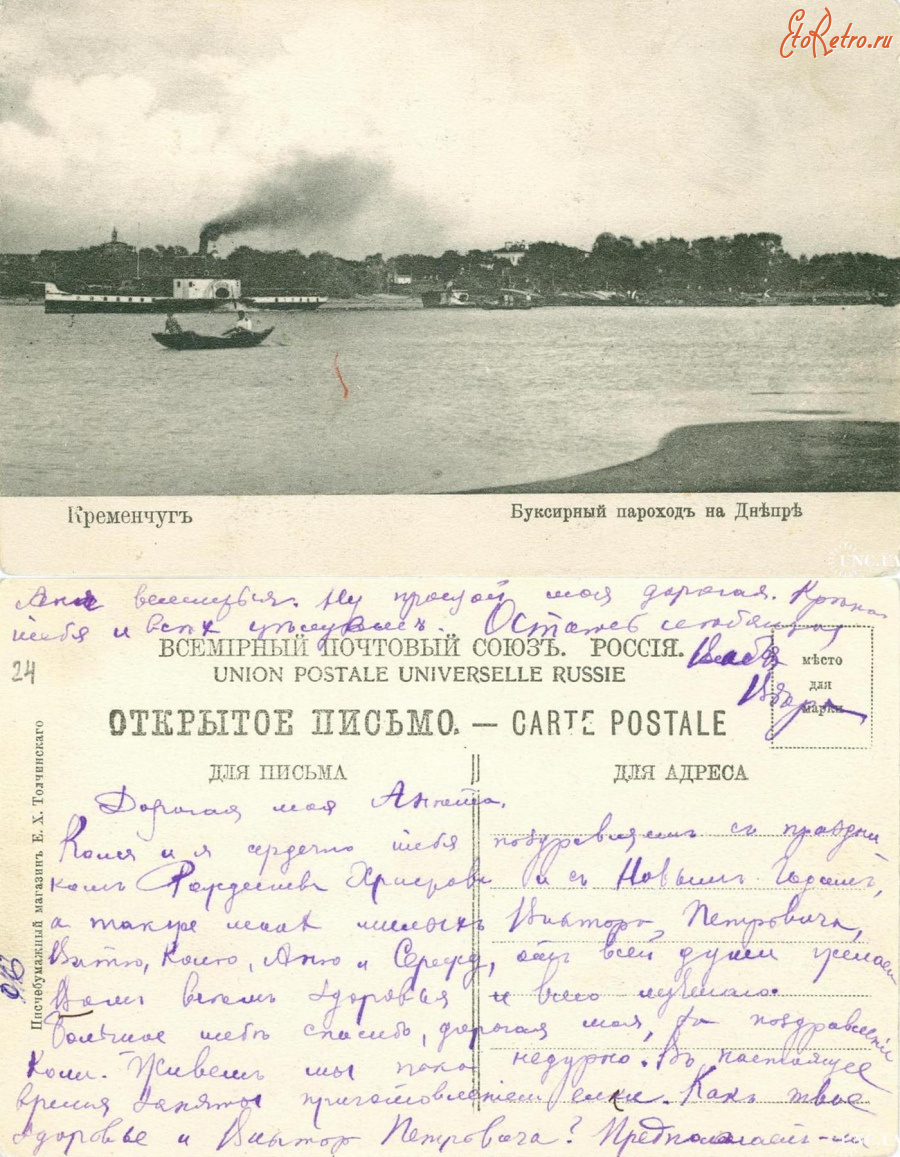 EtoRetro.ru
Кременчугъ
Буксирный пароходъ на Днѣпрѣ
UNC.UA
Аня Ну прощай моя дорогая. Крѣпко
тебя и всѣхъ цѣлуемъ. Остаюсь любящая
ВСЕМІРНЫЙ ПОЧТОВЫЙ СОЮЗЪ. РОССІЯ.
Васъ
UNION POSTALE UNIVERSELLE RUSSIE
мѣсто
для
марки
24
ОТКРЫТОЕ ПИСЬМО. — CARTE POSTALE
ДЛЯ ПИСЬМА
ДЛЯ АДРЕСА
Писчебумажный магазинъ Е. Х. Толчинскаго
Дорогая моя Анюта.
Коля и я сердечно тебя поздравляемъ съ праздни
комъ Рождества Христова и съ Новымъ Годомъ,
а также милыхъ Виктора Петровича,
Витю, Колю, Аню и Сережу, отъ всей души желаемъ
Вамъ всемъ здоровья и всего лучшаго.
Большое тебѣ спасибо, дорогая моя, за поздравленіе
Коли. Живемъ мы пока недурно. Въ настоящее
время заняты приготовленіемъ елки. Какъ твое
здоровье и Виктора Петровича? Предполагаемъ-ли